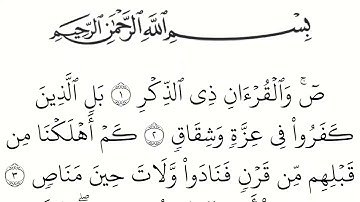 بِسْمِ اللَّهِ الرَّحْمَٰنِ الرَّحِيمِ
صٓ ۚ وَٱلْقُرْءَانِ ذِى ٱلذِّكْرِ ١ بَلِ ٱلَّذِينَ
كَفَرُوا۟ فِى عِزَّةٍۢ وَشِقَاقٍۢ ٢ كَمْ أَهْلَكْنَا مِن
قَبْلِهِم مِّن قَرْنٍۢ فَنَادَوا۟ وَّلَاتَ حِينَ مَنَاصٍۢ ٣